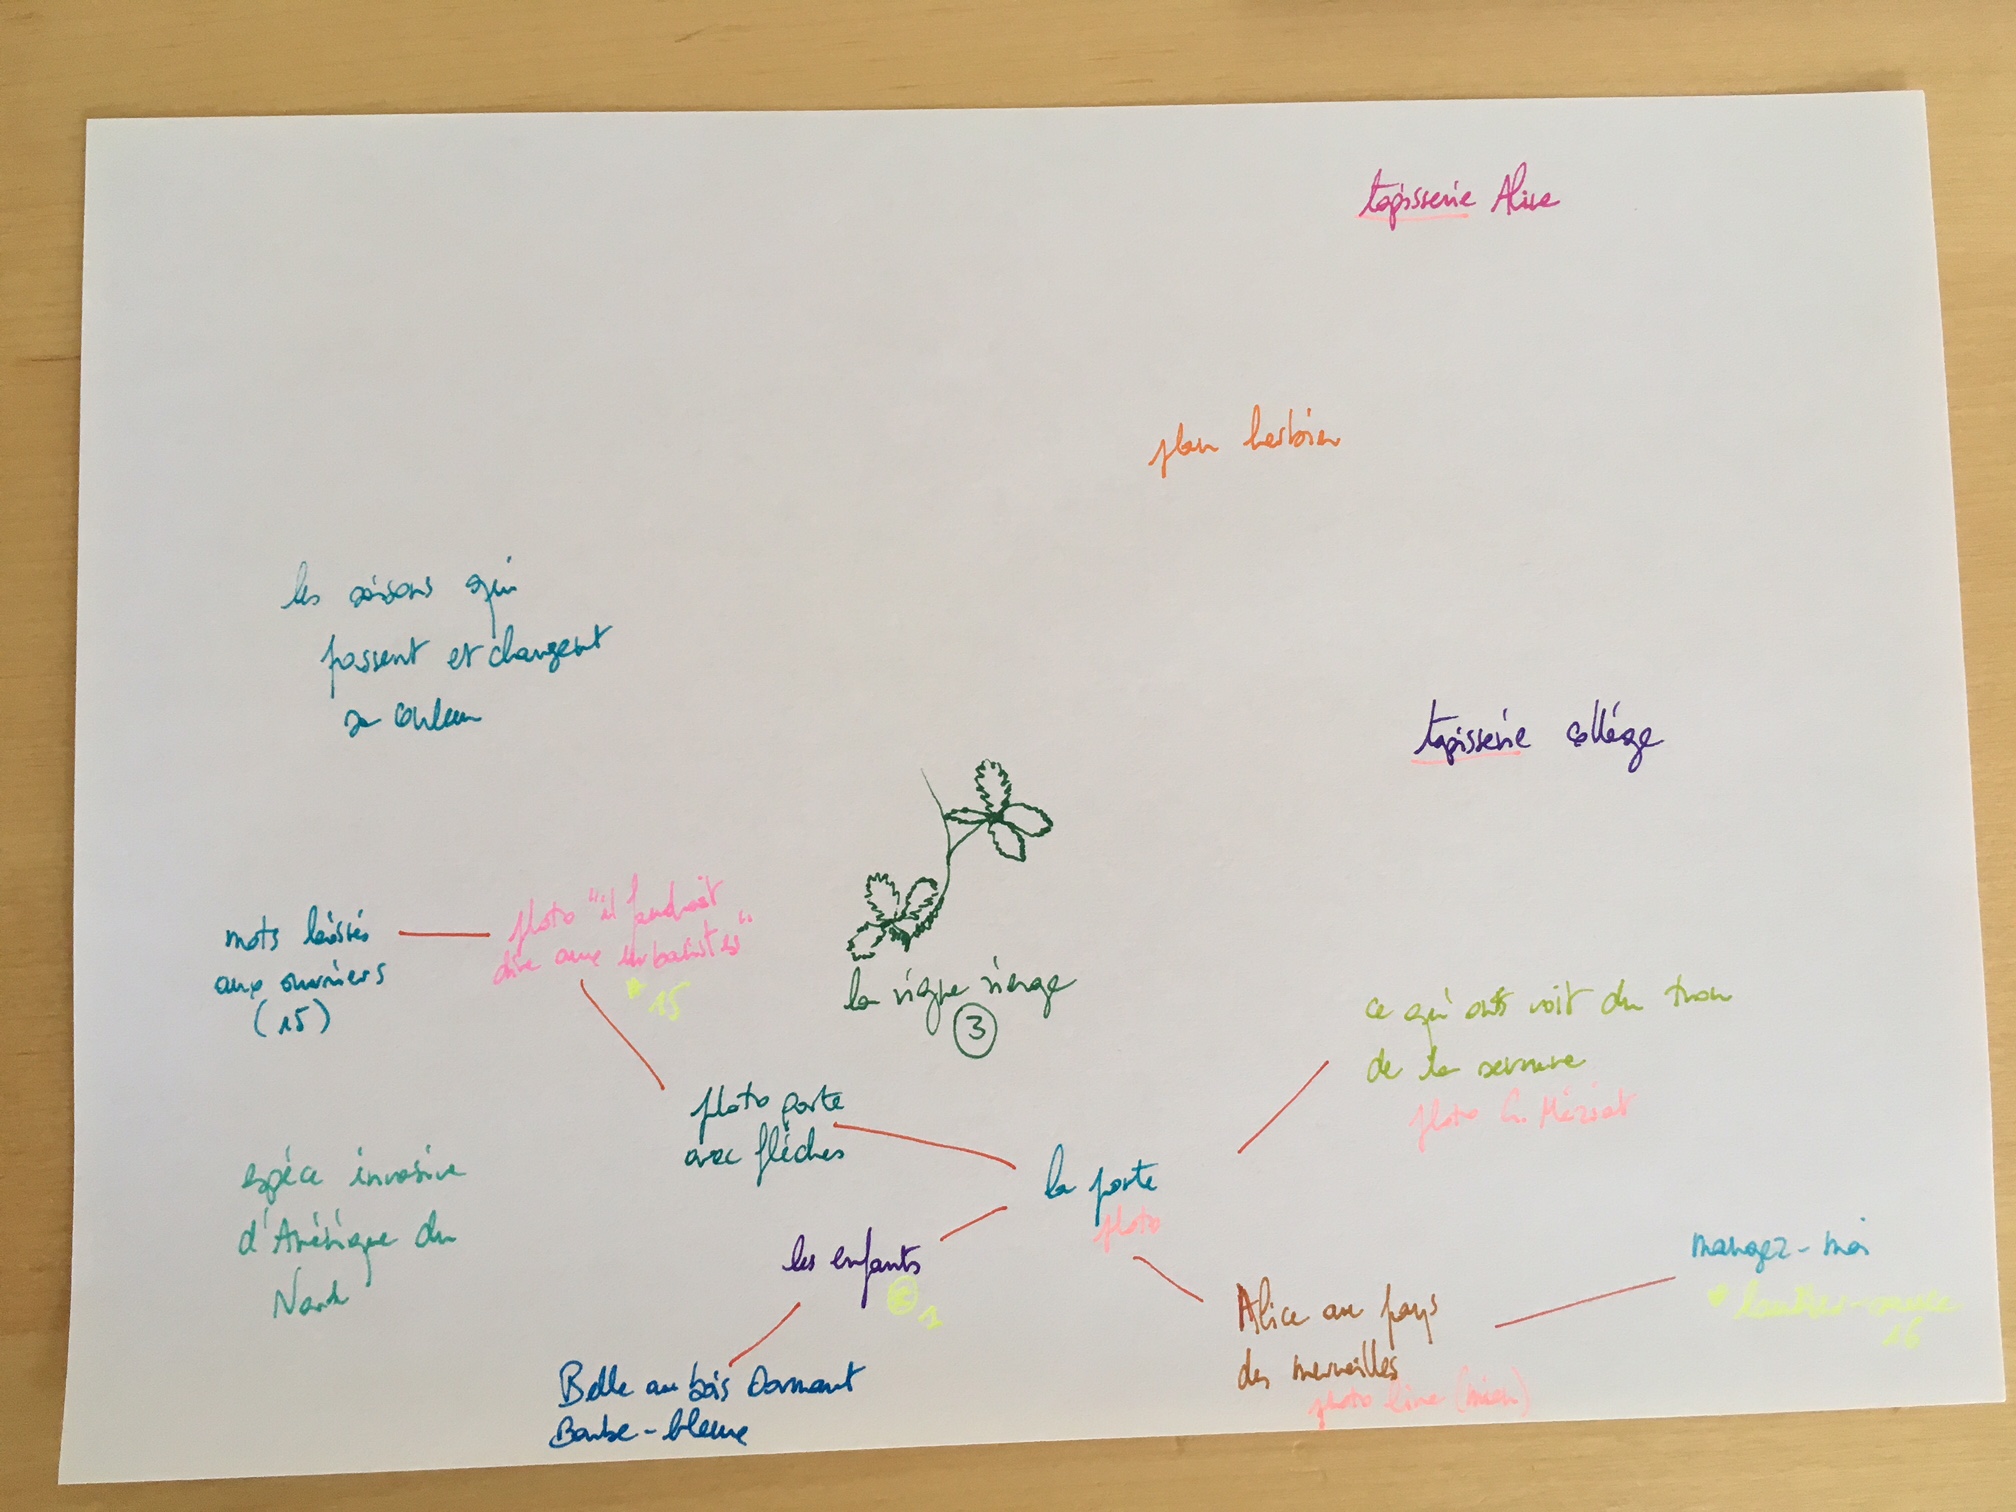 tapisserie Alice
plan herbier
les saisons qui
passent et changent
sa couleur
tapisserie collège
mots laissés
aux ouvriers
(15)
photo "il faudrait
dire aux urbanistes"
* 15
la vigne vierge
3
ce qu'on voit du trou
de la serrure
photo G. Méziat
photo porte
avec flèches
la porte
photo
espèce invasive
d'Amérique du
Nord
les enfants
1
mangez-moi
16
Alice au pays
des merveilles
photo livre (mien)
Belle au bois Dormant
Barbe-bleue